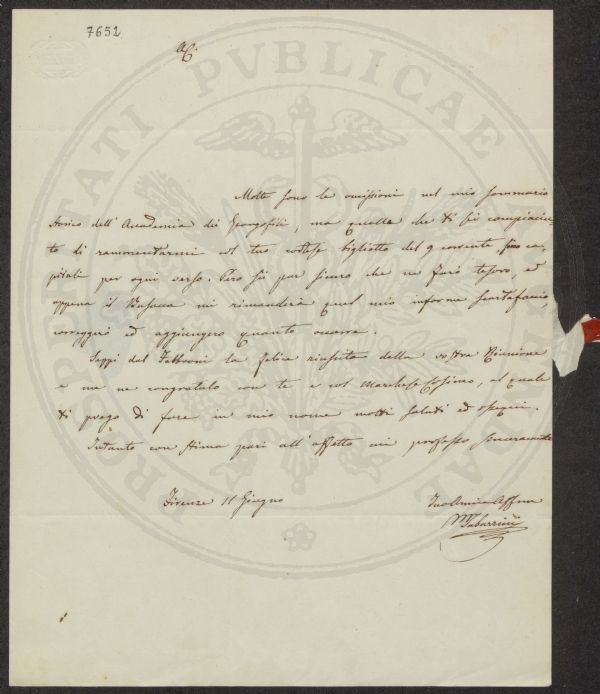 7652
A C.
Molte sono le omissioni nel mio sommario
storico dell'Accademia dei Georgofili, ma quelle che ti sei compiaciu-
to di rammentarmi col tuo cortese biglietto del 9 corrente sono ca-
pitali per ogni verso. Però sii pur sicuro che ne farò tesoro, ed
appena il Busacca mi rimanderà quel mio informe scartafaccio
correggerò ed aggiungerò quanto occorre.
Seppi dal Fabbroni la felice riuscita della vostra Riunione
e me ne congratulo con te e col Marchese Cosimo, al quale
ti prego di fare in mio nome molti saluti ed ossequi.
Intanto con stima pari all'affetto mi professo sinceramente
Firenze 11 Giugno
Tuo Amico Affmo
M Tabarrini
PROSPERITATI PVBLICAE AVGENDAE